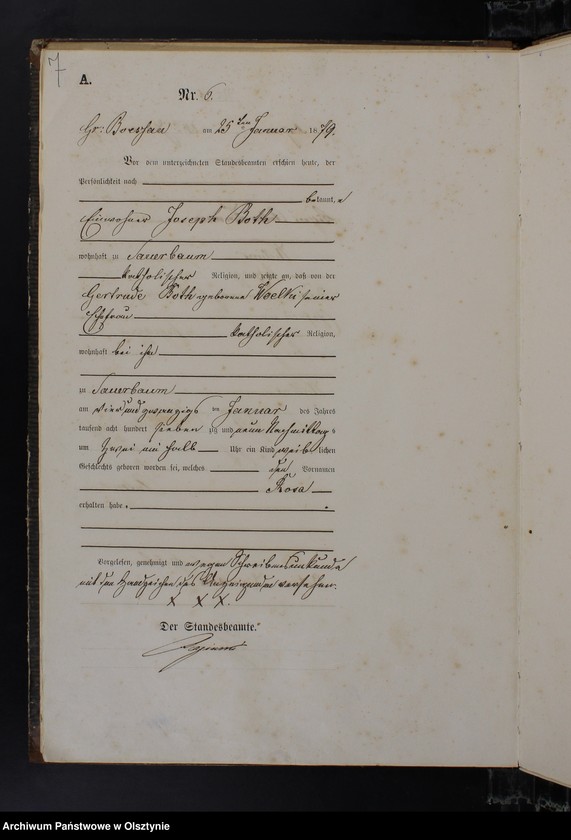 7
A.
Nr. 6.
Gr: Boessau am 25ten Januar 1879.
Vor dem unterzeichneten Standesbeamten erschien heute, der
Persönlichkeit nach
bekannt,
Einwohner Joseph Both
wohnhaft zu Sauerbaum
katholischer Religion, und zeigte an, daß von der
Gertrude Both geborene Woelki seiner
Ehefrau
katholischer Religion,
wohnhaft bei ihm
zu Sauerbaum
am vier und zwanzigs ten Januar des Jahres
tausend acht hundert sieben zig und neun Nachmittags
um zwei ein halb Uhr ein Kind weiblichen
Geschlechts geboren worden sei, welches den Vornamen
Rosa
erhalten habe.
Vorgelesen, genehmigt und wegen Schreibensunkunde
mit dem Handzeichen des Anzeigenden versehen.
X X X.
Der Standesbeamte.
Archiwum Państwowe w Olsztynie